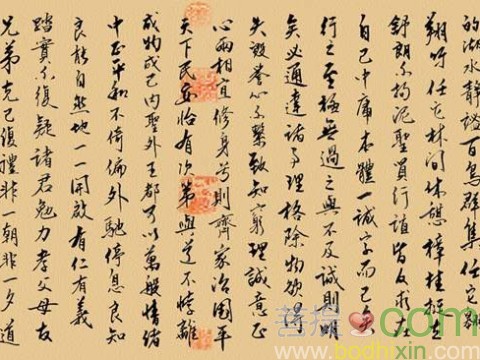 的湖水静谧百鸟群集任它翱
翔呼任它林间休憩樟桂枝生
舒朗不拘泥圣贤行谊皆反求在
自己中庸本体一诚字而已矣
行之至极无过之与不及诚则明
矣必通达诸事理格除物欲得
失毁誉心不系致知穷理诚意正
心两相宜修身兮则齐家治国平
天下民安恰有次第与道不悖离
成物成己内圣外王都可以万般情绪
中正平和不倚偏外驰停息良知
良能自然地一一开启有仁有义
踏实不复疑诸君勉力孝父母友
兄弟克己复礼非一朝非一夕道
菩提心.com
www.bodhixin.com